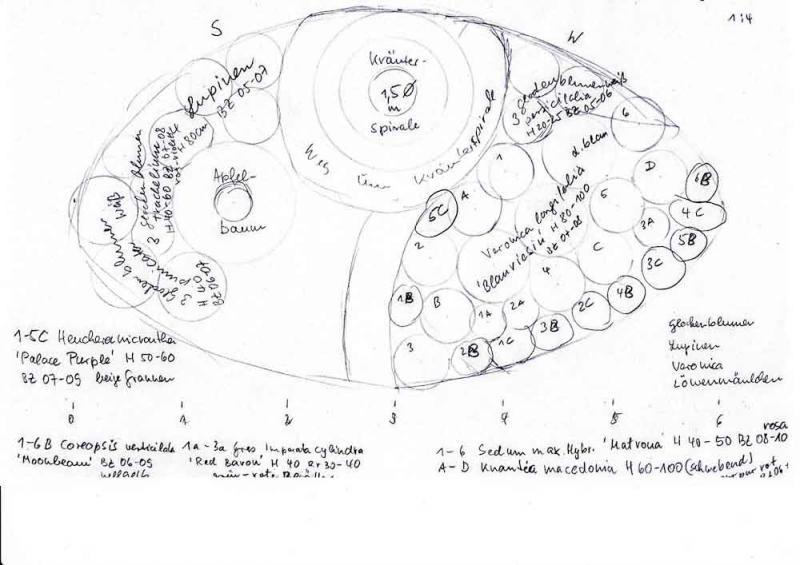 S
W
1:4
Kräuter-
1,5 Ø
m
spirale
Weg
Kräuterspirale
Lupinen
BZ 05-07
Glockenblumen
H 40-60 BZ 07-08
H 80cm
Apfel-
baum
3 Glockenblumen
weiß
persicifolia
BZ 05-06
d.blau
Veronica longifolia
'Blauriesin' H 80-100
BZ 07-08
3 Glockenblumen
punctata
Glockenblumen
weiß
1
2
3
4
5
6
A
B
C
D
1A
2A
3A
1B
2B
3B
4B
5B
6B
1C
2C
3C
4C
5C
1-5C Heuchera micrantha
'Palace Purple' H 50-60
BZ 07-09 beige
Glockenblumen
Lupinen
Veronica
Löwenmäulchen
0
1
2
3
4
5
6
1-6B Coreopsis verticilda
'Moonbeam' BZ 06-09
hellgelb
1a-3a Gras Imparata cylindra
'Red Baron' H 40 30-40
rosa
1-6 Sedum max. Hybr. 'Matrona' H 40-50 BZ 08-10
A-D Knautia macedonia H 60-100 (schwebend)